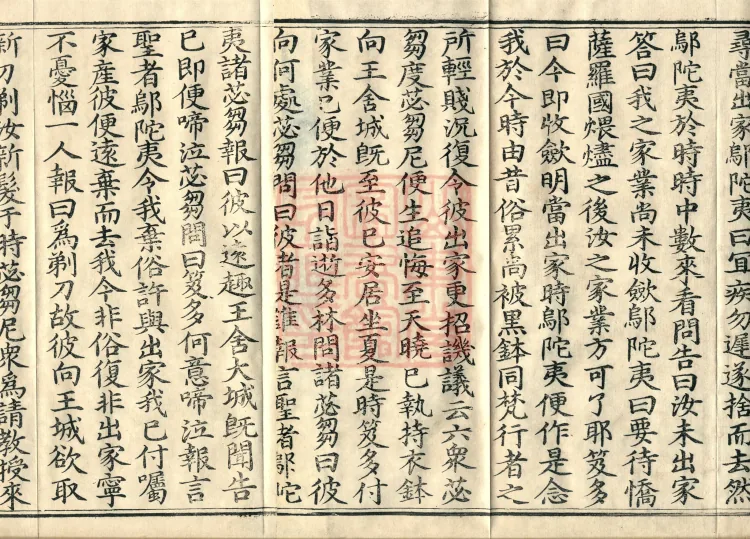 尋當出家鄔陀夷曰宜疾勿遲遂捨而去然
鄔陀夷於時時中數來看問告曰汝未出家
答曰我之家業尚未收斂鄔陀夷曰要待憍
薩羅國煨燼之後汝之家業方可了耶笈多
曰今即收斂明當出家時鄔陀夷便作是念
我於今時由昔俗累尚被黑鉢同梵行者之
所輕賤況復令彼出家更招譏議云六衆苾
芻度苾芻尼便生追悔至天曉已執持衣鉢
向王舍城旣至彼已安居坐夏是時笈多付
家業已便於他日詣逝多林問諸苾芻曰彼
向何處苾芻問曰彼者是誰報言聖者鄔陀
夷諸苾芻報曰彼以遠趣王舍大城旣聞告
已即便啼泣苾芻問曰笈多何意啼泣報言
聖者鄔陀夷令我棄俗許與出家我已付囑
家產彼便遠棄而去我今非俗復非出家寧
不憂惱一人報曰爲剃刀故彼向王城欲取
新刀剃汝新髮于時苾芻尼衆爲請教授來